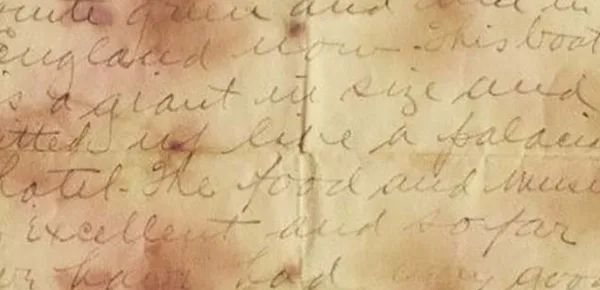 uite green and in
England now - This boat
is a giant in size and
itted up like a palacia
hotel. The food and musi
excellent and so far
have had very good